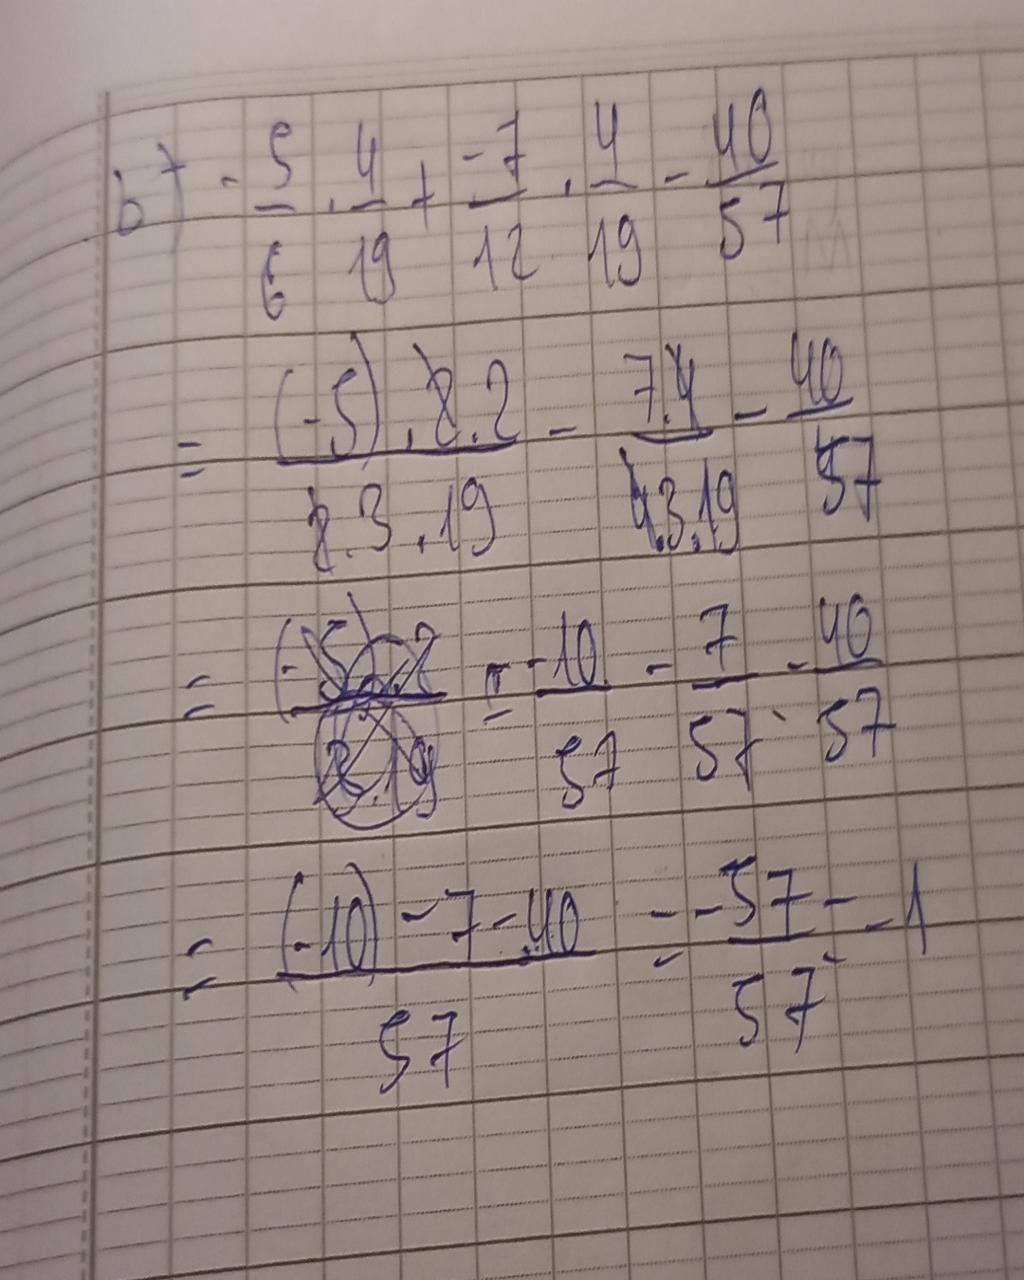 b) - 5/6 . 4/19 + -7/12 . 4/19 - 40/57
= (-5) . 2.2 / 2.3.19 - 7.4 / 4.3.19 - 40/57
= -10/57 - 7/57 - 40/57
= (-10) - 7 - 40 / 57 = -57/57 = -1